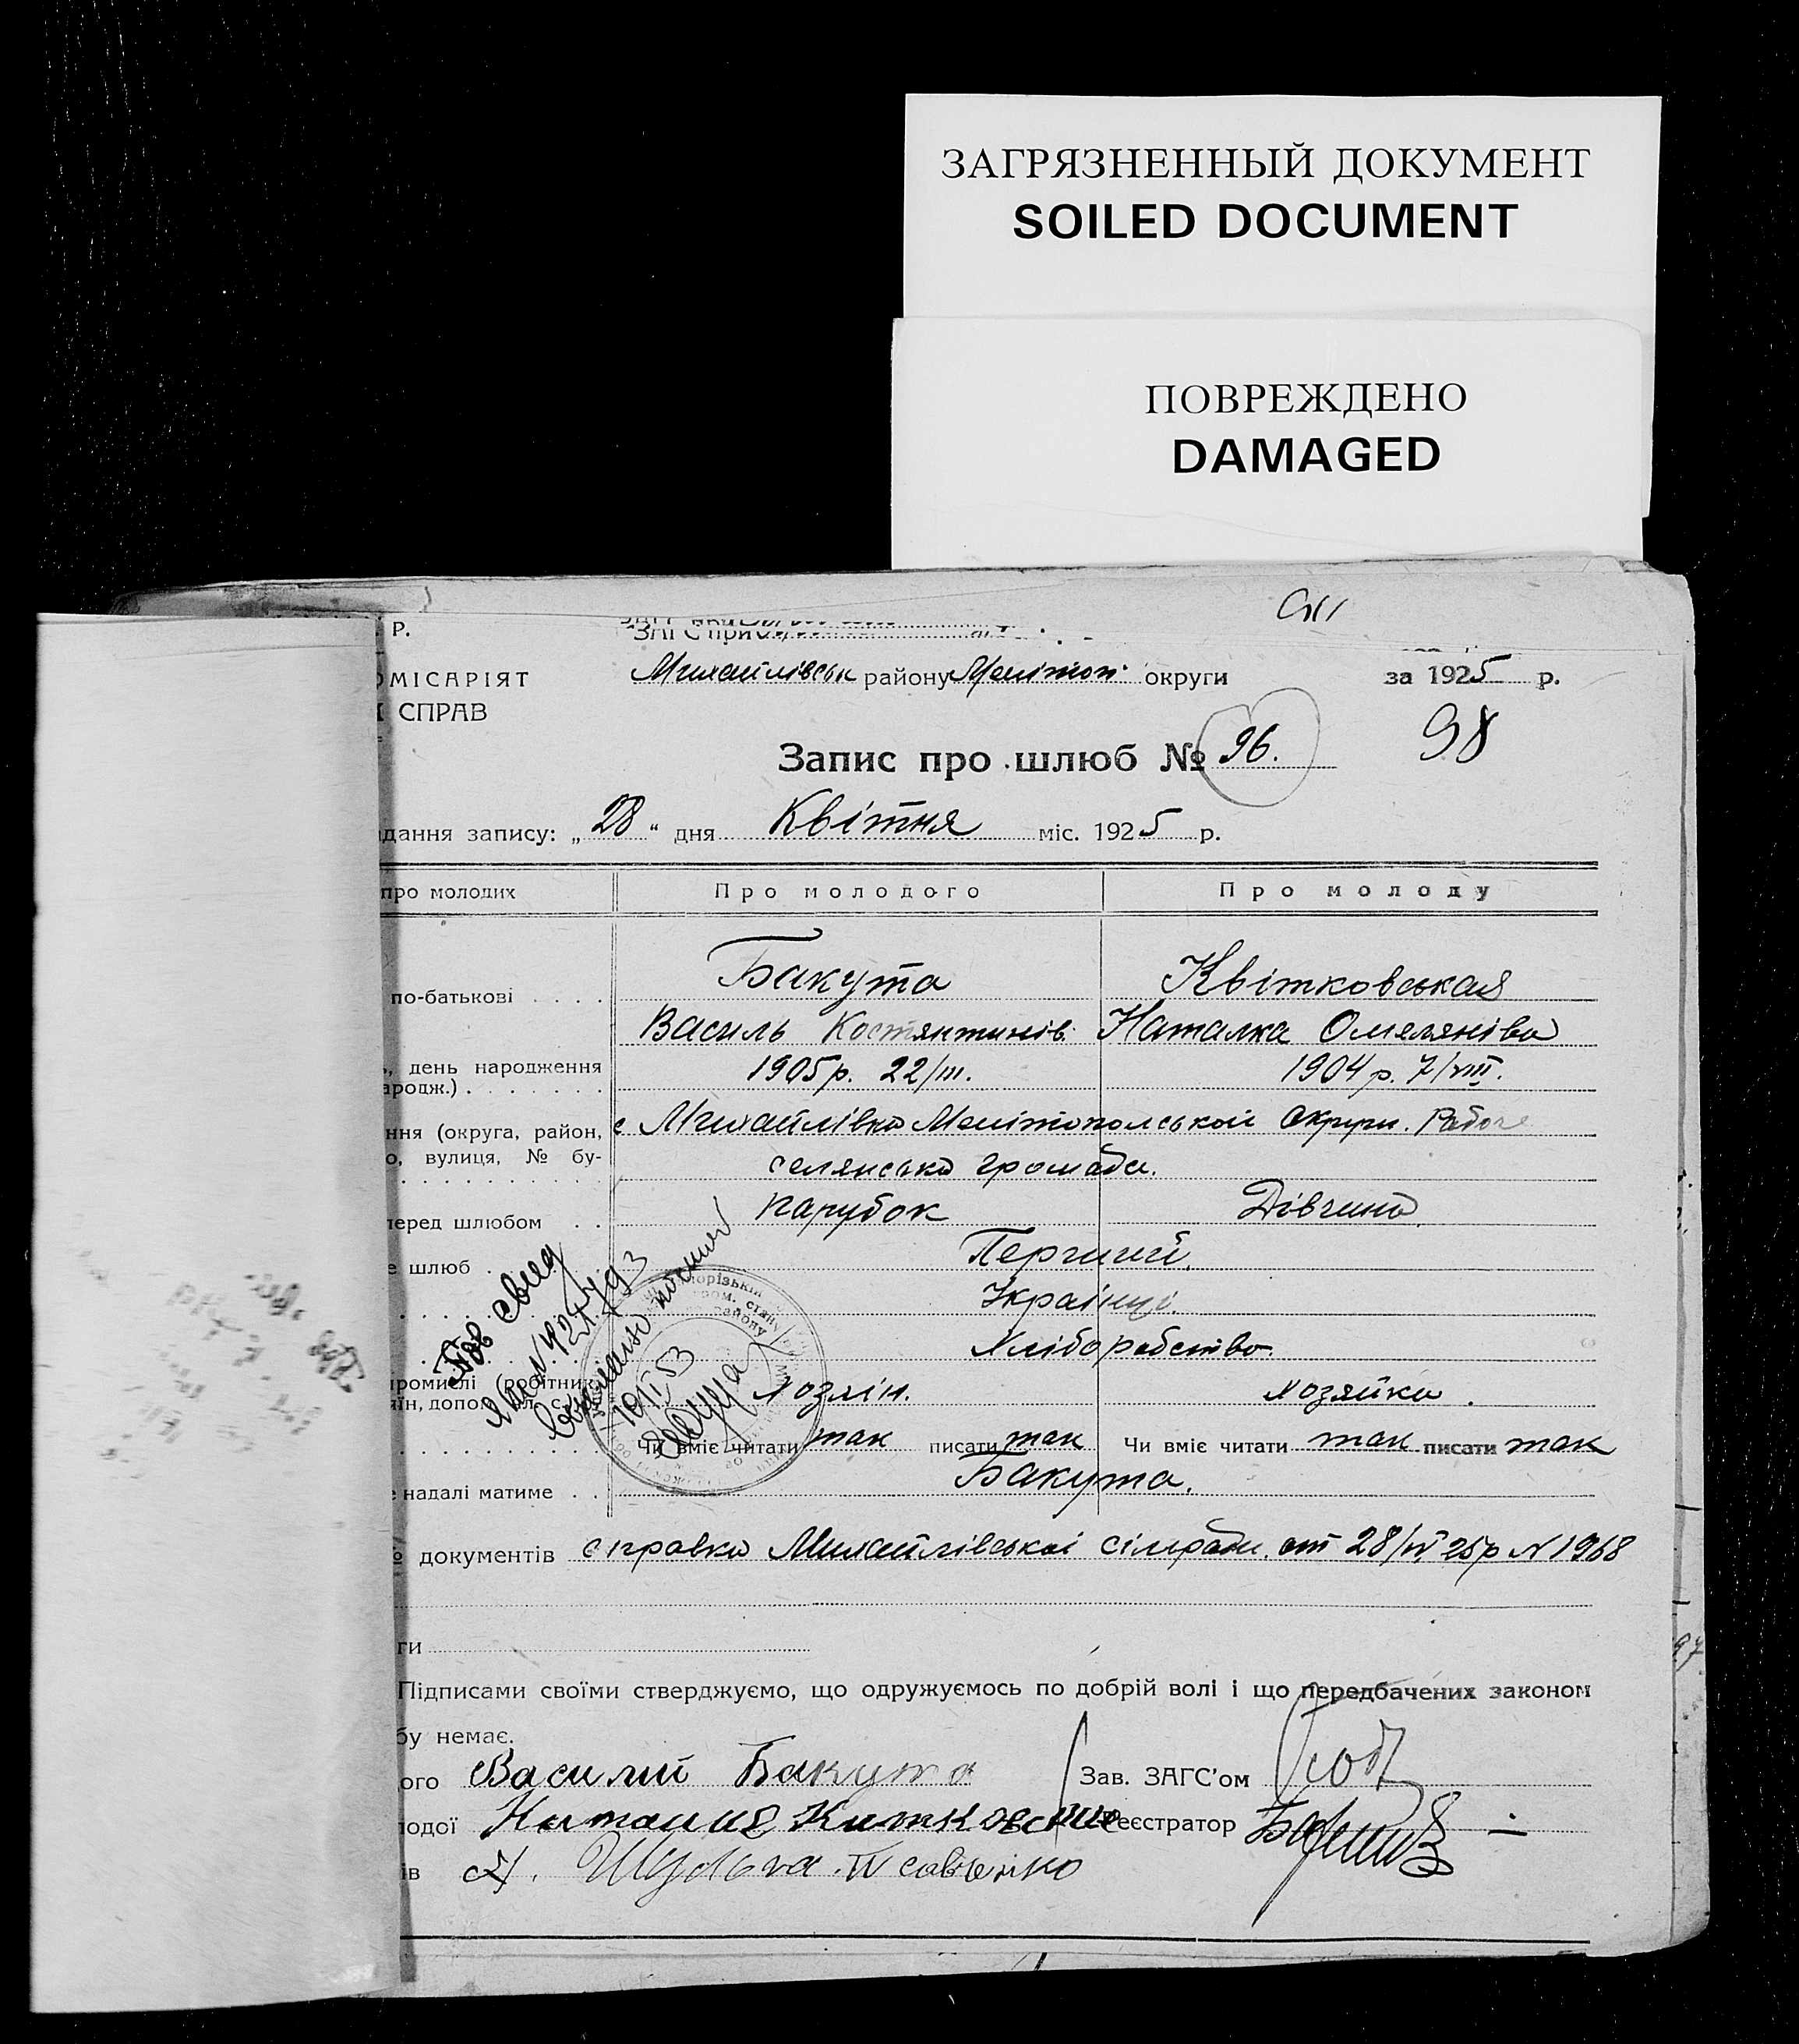 ЗАГРЯЗНЕННЫЙ ДОКУМЕНТ
SOILED DOCUMENT
ПОВРЕЖДЕНО
DAMAGED
Р.
ЗАГС при
ОМІСАРІЯТ
СПРАВ
Михайлівськ району Меліноп округи за 1925 р.
98
Запис про шлюб № 96.
дання запису: „28“ дня Квітня міс. 1925 р.
про молодих Про молодого Про молоду
по-батькові . . . . Бакута Квітковськая
Василь Костянтинів. Наталка Омелянівна
, день народження 1905 р. 22/III. 1904 р. 7/VIII.
ародж.) . . . . . . .
ння (округа, район, с Михайлівка Мелітопольськой Округи. Рабоче
о, вулиця, № бу- селянська громада.
перед шлюбом . . Парубок Дівчина
е шлюб . . . Перший.
Українці
Хліборобство.
промислі (робітник,
їн, допом. Хозяїн. Хозяйка.
Чи вміє читати так писати так Чи вміє читати так писати так
е надалі матиме . . Бакута.
№ документів справка Михайлівської сільради. от 28/IV 25р N 1968
ги
Підписами своїми стверджуємо, що одружуємось по добрій волі і що передбачених законом
бу немає.
ого Василий Бакута Зав. ЗАГС'ом
одої Наталия Китковская Реєстратор
ів Шульга П Савченко
97